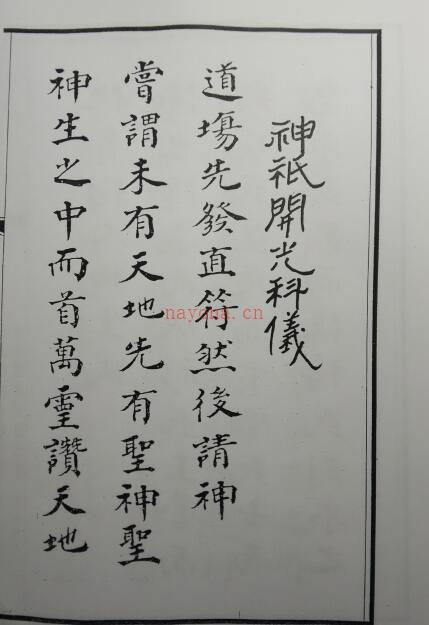 神祇開光科儀
道塲先發直符然後請神
嘗謂未有天地先有聖神聖
神生之中而首萬靈讚天地
nayona.cn